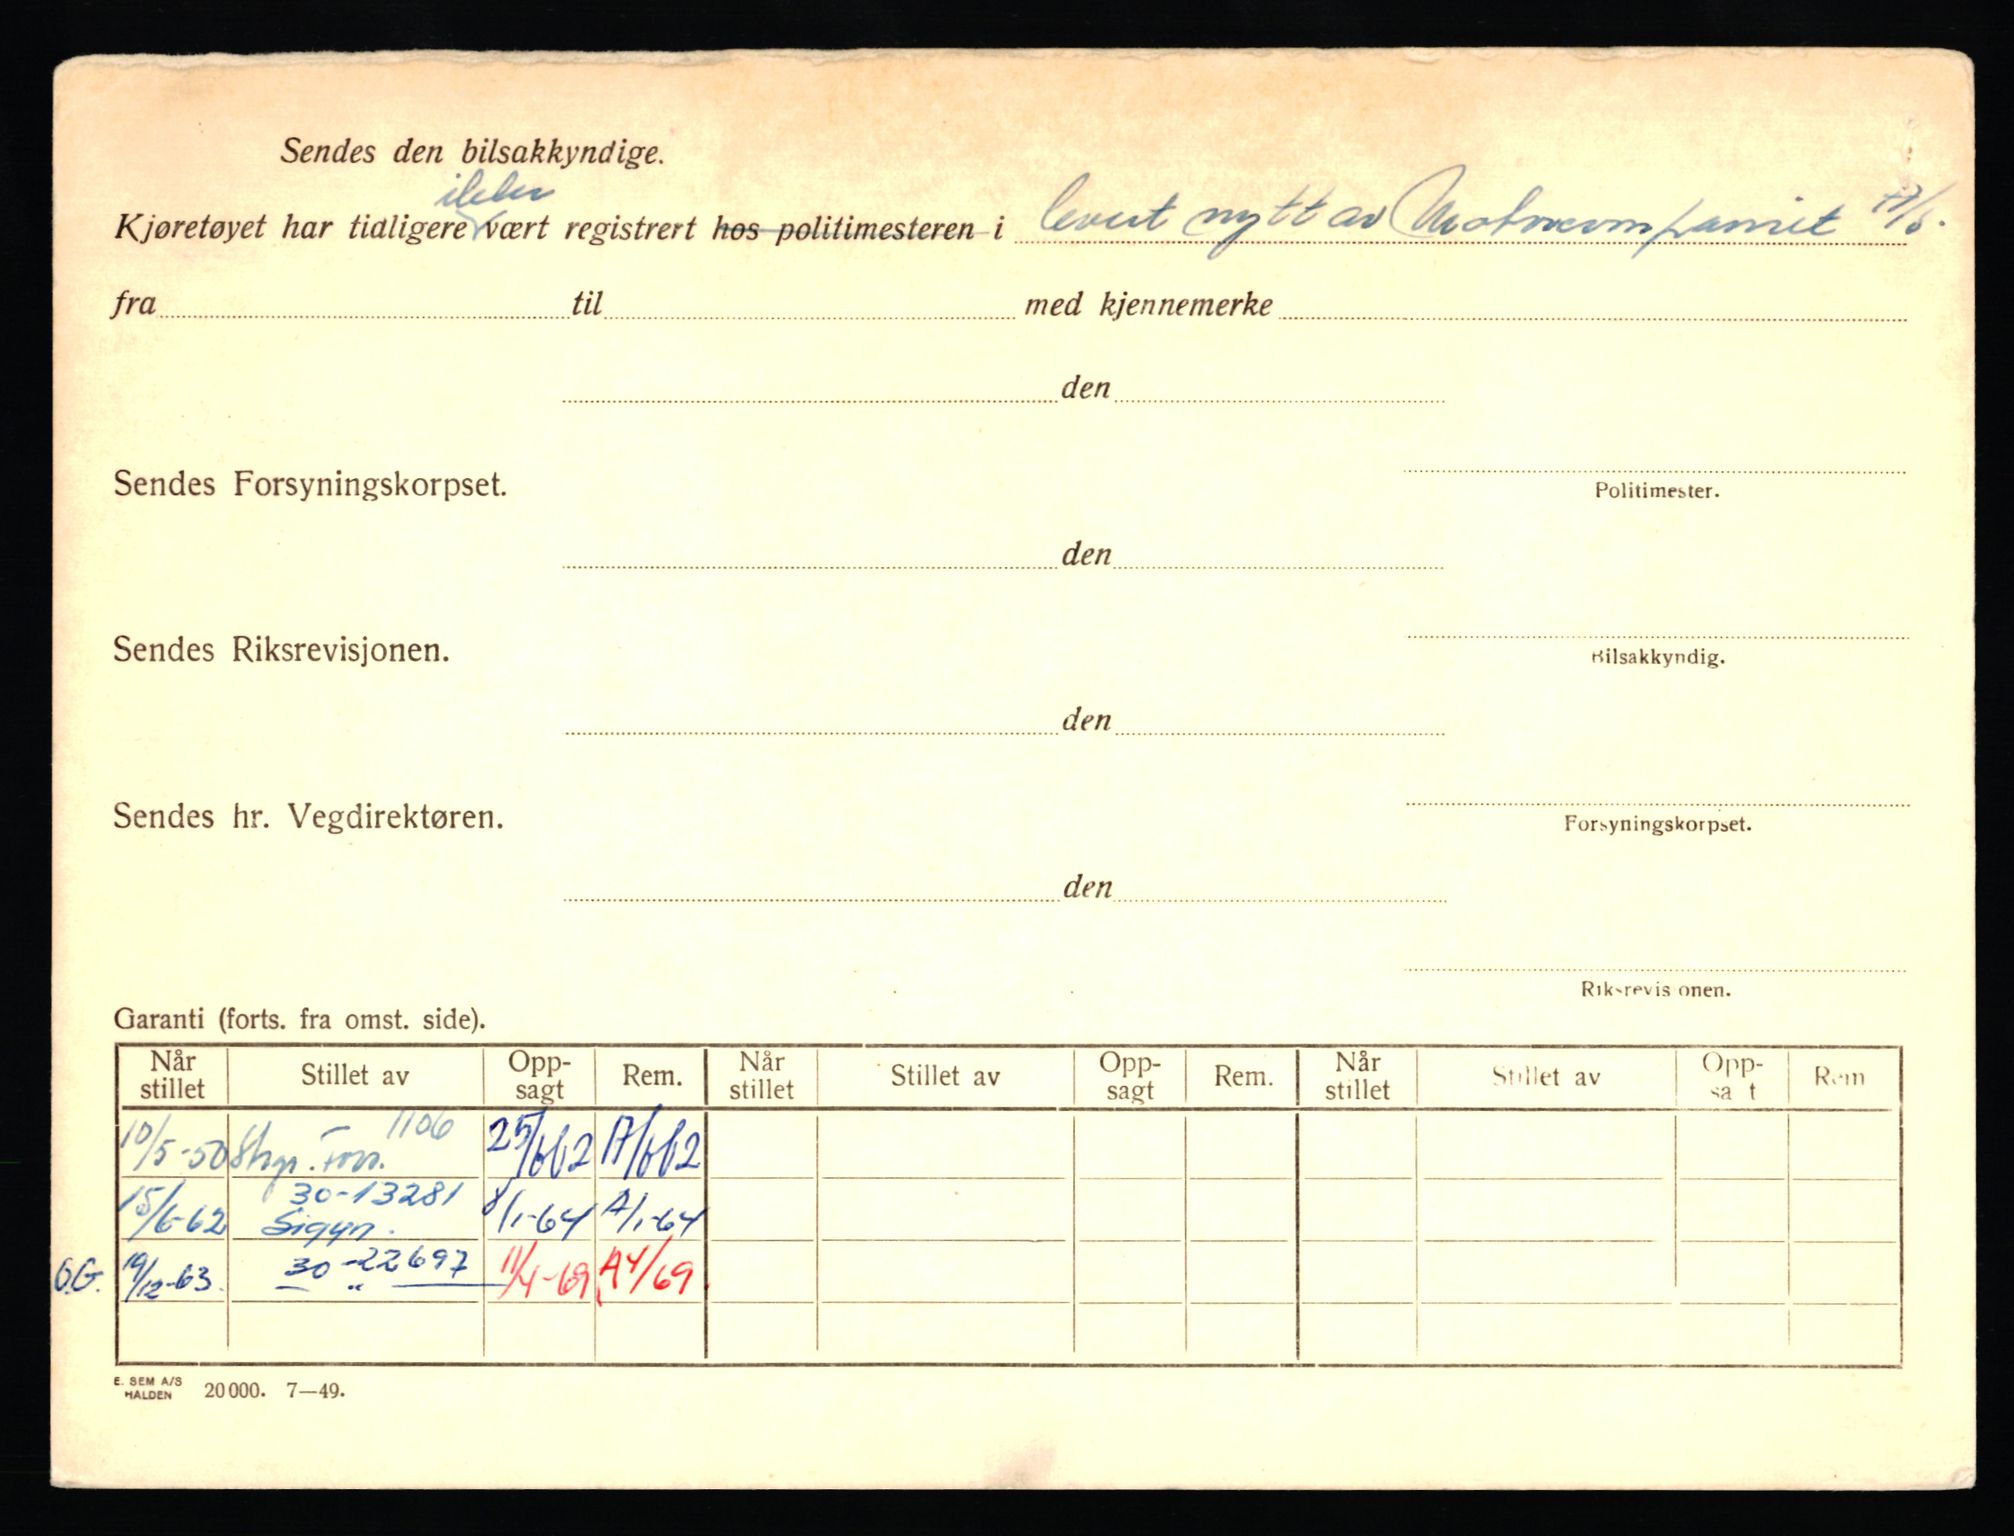 Sendes den bilsakkyndige.
ikke
Kjøretøyet har tidligere vært registrert hos politimesteren i levert nytt av Motorcompaniet
fra til med kjennemerke
den
Sendes Forsyningskorpset.
Politimester.
den
Sendes Riksrevisjonen.
Bilsakkyndig.
den
Sendes hr. Vegdirektøren.
Forsyningskorpset.
den
Riksrevis onen.
Garanti (forts. fra omst. side).
Når stillet Stillet av Opp-sagt Rem. Når stillet Stillet av Opp-sagt Rem. Når stillet Stillet av Opp-sa t Rem
1106
10/5-50
30-13281
15/6-62 Sigyn. 8/1-64 A/1-64
30-22697
G.G. 19/12-63. — " — 11/4-69 A4/69
E. SEM A/S
HALDEN 20000. 7—49.